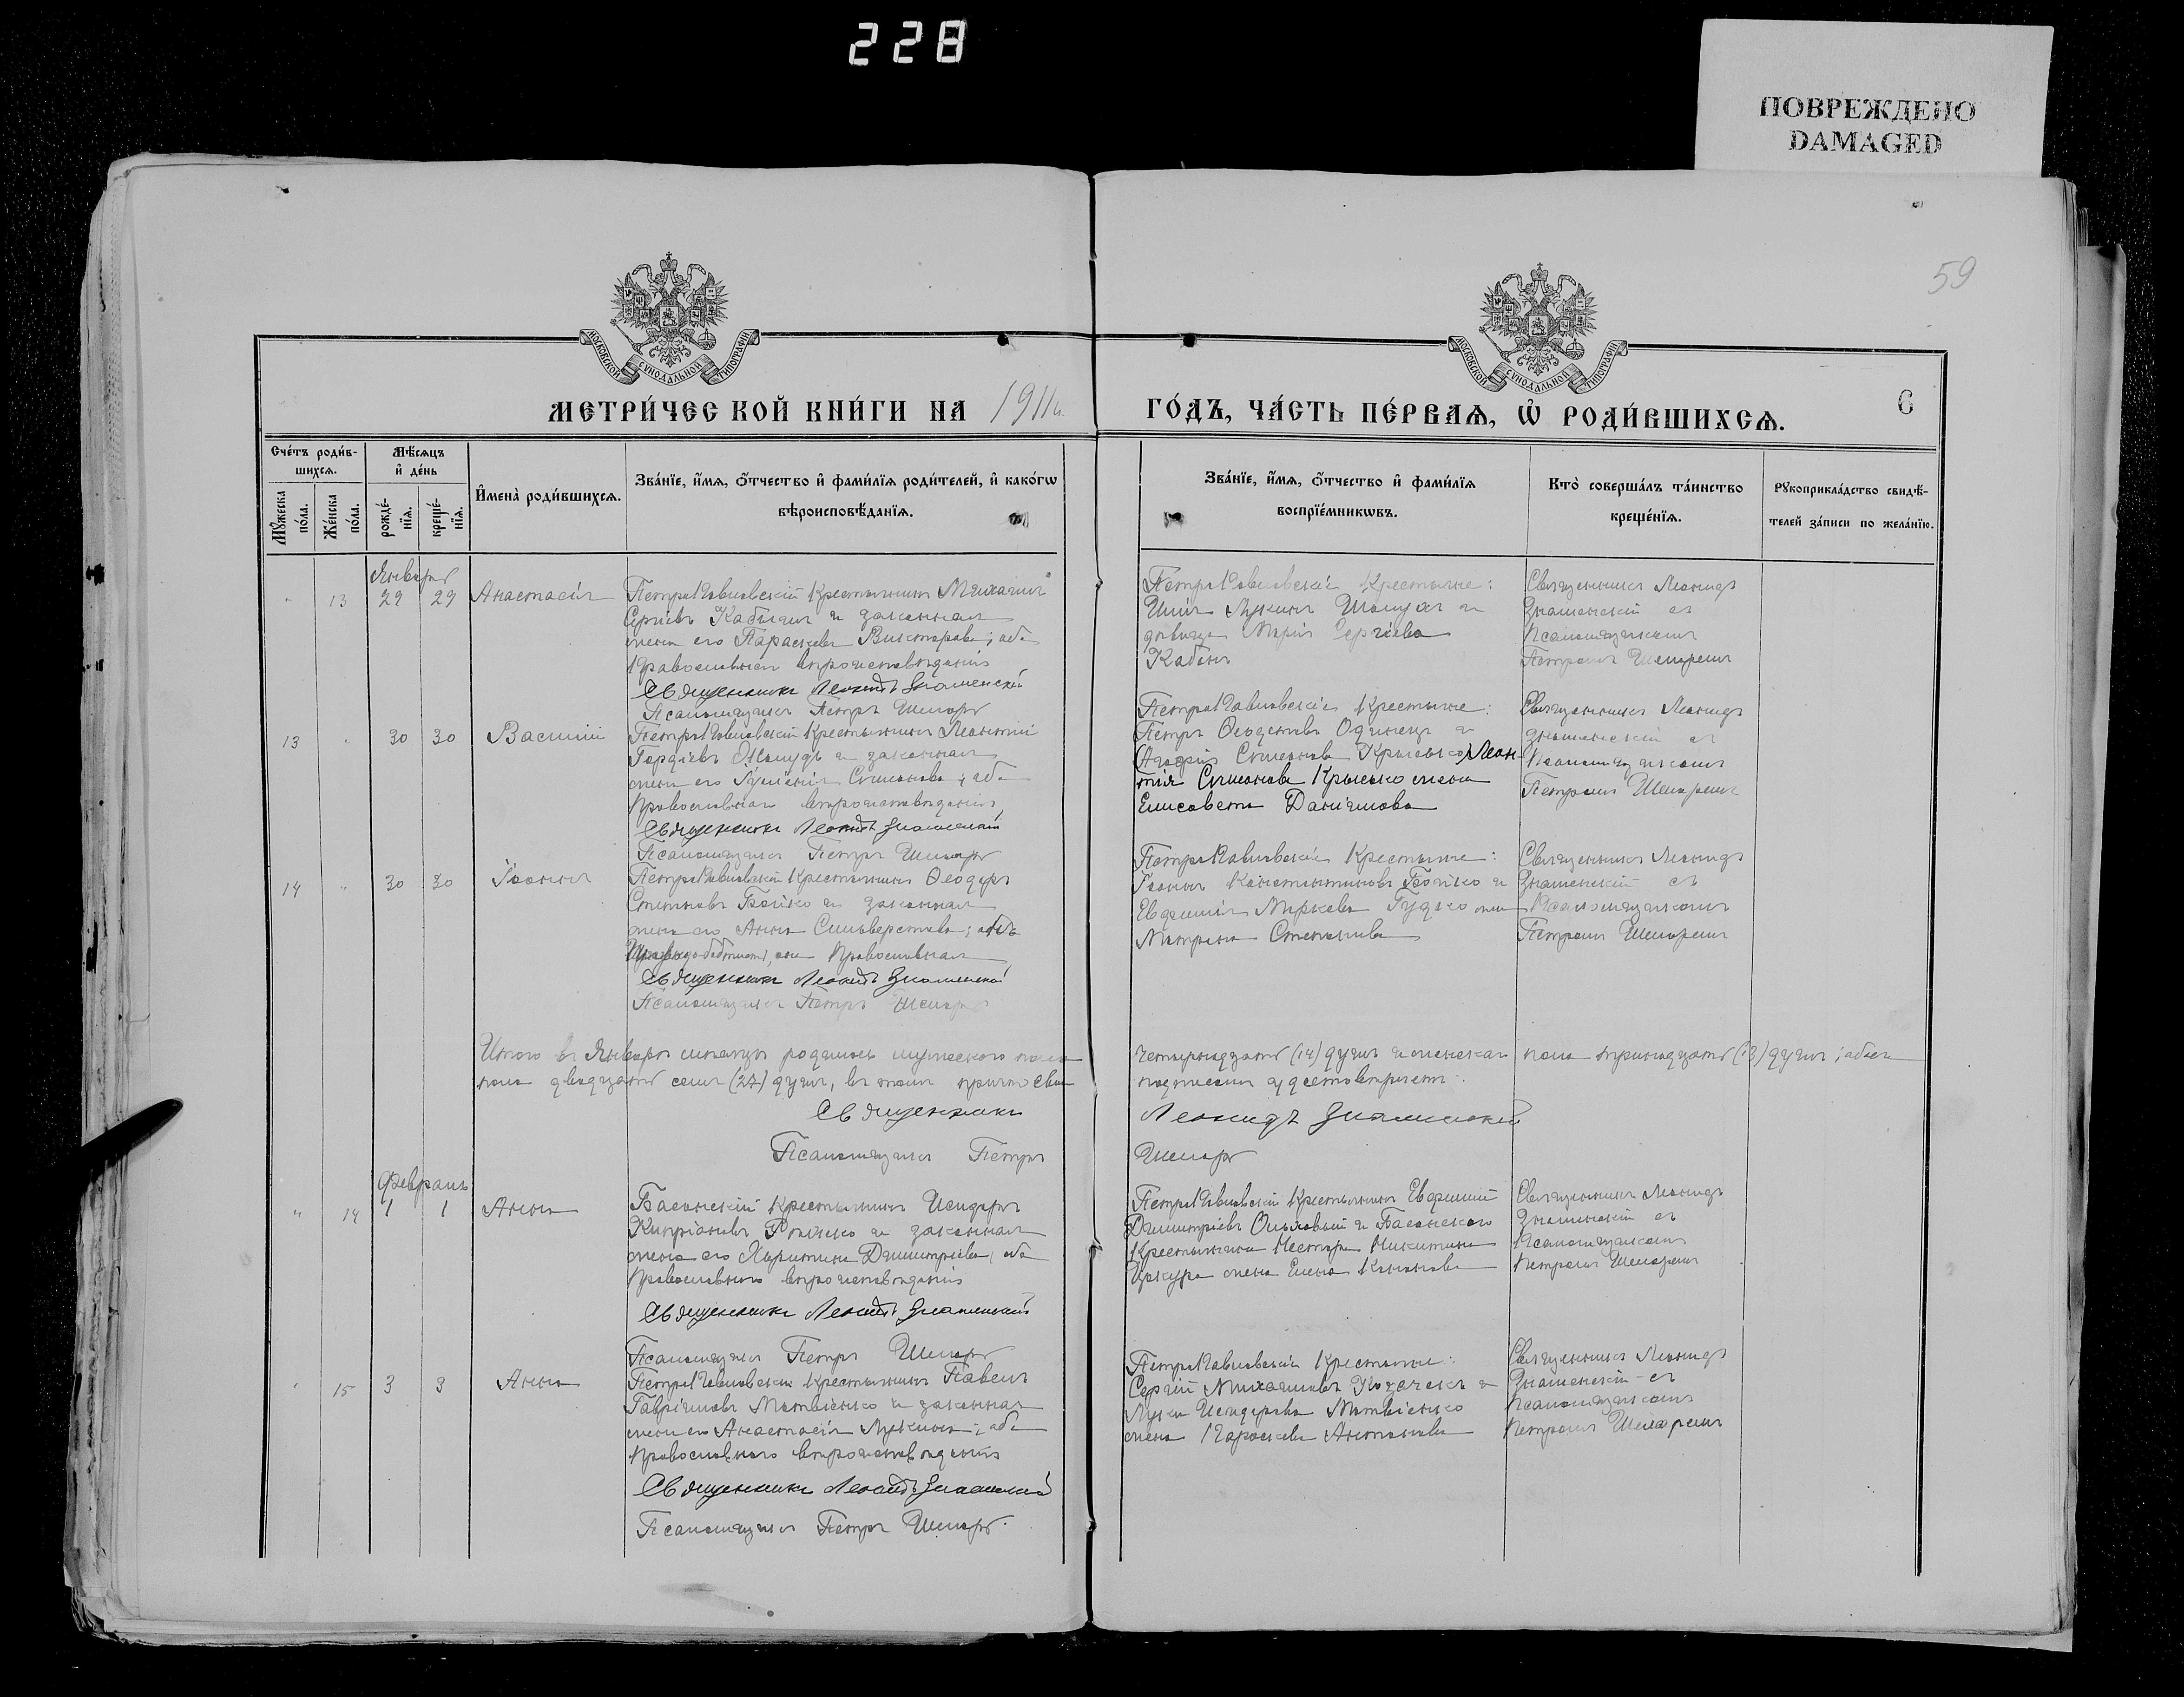 228
ПОВРЕЖДЕНО
DAMAGED
59
МОСКОВСКОЙ СѴНОДАЛЬНОЙ ТИПОГРАФІИ
МОСКОВСКОЙ СѴНОДАЛЬНОЙ ТИПОГРАФІИ
МЕТРИ́ЧЕСКОЙ КНИ́ГИ НА 1911
ГО́ДЪ, ЧА́СТЬ ПЕ́РВАѦ, Ѡ҆ РОДИ́ВШИХСѦ.
6
Сче́тъ роди́в-
шихсѧ.
Мꙋ́жеска
по́ла.
Же́нска
по́ла.
Мѣ́сѧцъ
и҆ де́нь
рожде́-
нїѧ.
креще́-
нїѧ.
И҆мена̀ роди́вшихсѧ.
Зва́нїе, и҆́мѧ, ѻ҆́тчество и҆ фами́лїѧ роди́телей, и҆ како́гѡ
вѣроисповѣ́данїѧ.
Зва́нїе, и҆́мѧ, ѻ҆́тчество и҆ фами́лїѧ
воспрїе́мникѡвъ.
Кто̀ соверша́лъ та́инство
креще́нїѧ.
Рꙋкоприкла́дство свидѣ́-
телей за́писи по жела́нїю.
Январь
" 13 29 29 Анастасія
Петропавловскій крестьянинъ Михаилъ
Сергіевъ Кабанъ и законная
жена его Параскева Викторова; оба
православнаго вѣроисповѣданія
Священникъ Леонидъ Знаменскій
Псаломщикъ Петръ Шепарь
Петропавловскіе крестьяне:
Лукинъ и
дѣвица Марія Сергіева
Кабанъ
Священникъ Леонидъ
Знаменскій съ
псаломщикомъ
Петромъ Шепаремъ
13 " 30 30 Василій
Петропавловскій крестьянинъ Леонтій
Гордіевъ и законная
жена его Симеонова; оба
православнаго вѣроисповѣданія
Священникъ Леонидъ Знаменскій
Псаломщикъ Петръ Шепарь
Петропавловскіе крестьяне:
Петръ Ѳеодотовъ Одинецъ и
Симеонова Крысько, Леон-
тія Симеонова Крысько жена
Елисавета Даніилова
Священникъ Леонидъ
Знаменскій съ
псаломщикомъ
Петромъ Шепаремъ
14 " 30 30 Іоаннъ
Петропавловскій крестьянинъ Ѳеодоръ
Степановъ Бойко и законная
жена его Анна Сильверстова;
православная
Священникъ Леонидъ Знаменскій
Псаломщикъ Петръ Шепарь
Петропавловскіе крестьяне:
Іоаннъ Константиновъ Бойко и
Евфимія Маркова Гудзь жена
Матрона Степанова
Священникъ Леонидъ
Знаменскій съ
псаломщикомъ
Петромъ Шепаремъ
Итого въ Январѣ мѣсяцѣ родилось мужеского пола четырнадцать (14) душъ и женскаго пола тринадцать (13) душъ; обоего
пола двадцать семь (27) душъ, въ томъ причтъ свои подписомъ удостовѣряетъ.
Священникъ Леонидъ Знаменскій
Псаломщикъ Петръ Шепарь
Февраль
" 14 1 1 Анна
Басанскій крестьянинъ Исидоръ
Кипріановъ и законная
жена его Харитина Димитріева; оба
православнаго вѣроисповѣданія
Священникъ Леонидъ Знаменскій
Псаломщикъ Петръ Шепарь
Петропавловскій крестьянинъ Евфимій
Димитріевъ Ольховый и Басанскаго
крестьянина Нестора Никитина
жена Елена
Священникъ Леонидъ
Знаменскій съ
псаломщикомъ
Петромъ Шепаремъ
" 15 3 3 Анна
Петропавловскій крестьянинъ Павелъ
Гавріиловъ Матвіенко и законная
жена его Анастасія Лукина; оба
православнаго вѣроисповѣданія
Священникъ Леонидъ Знаменскій
Псаломщикъ Петръ Шепарь
Петропавловскіе крестьяне:
Сергій Михаиловъ Козачекъ и
Луки Исидорова Матвіенко
жена Параскева Антонова
Священникъ Леонидъ
Знаменскій съ
псаломщикомъ
Петромъ Шепаремъ